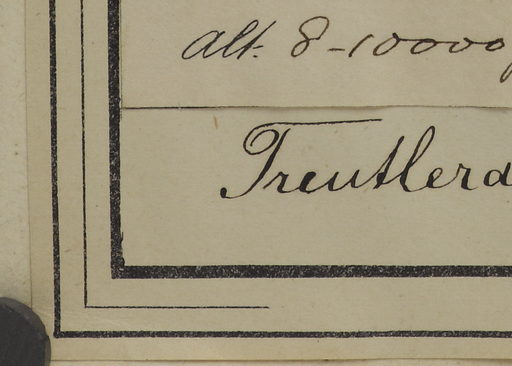 alt. 8-10000
Treutlera